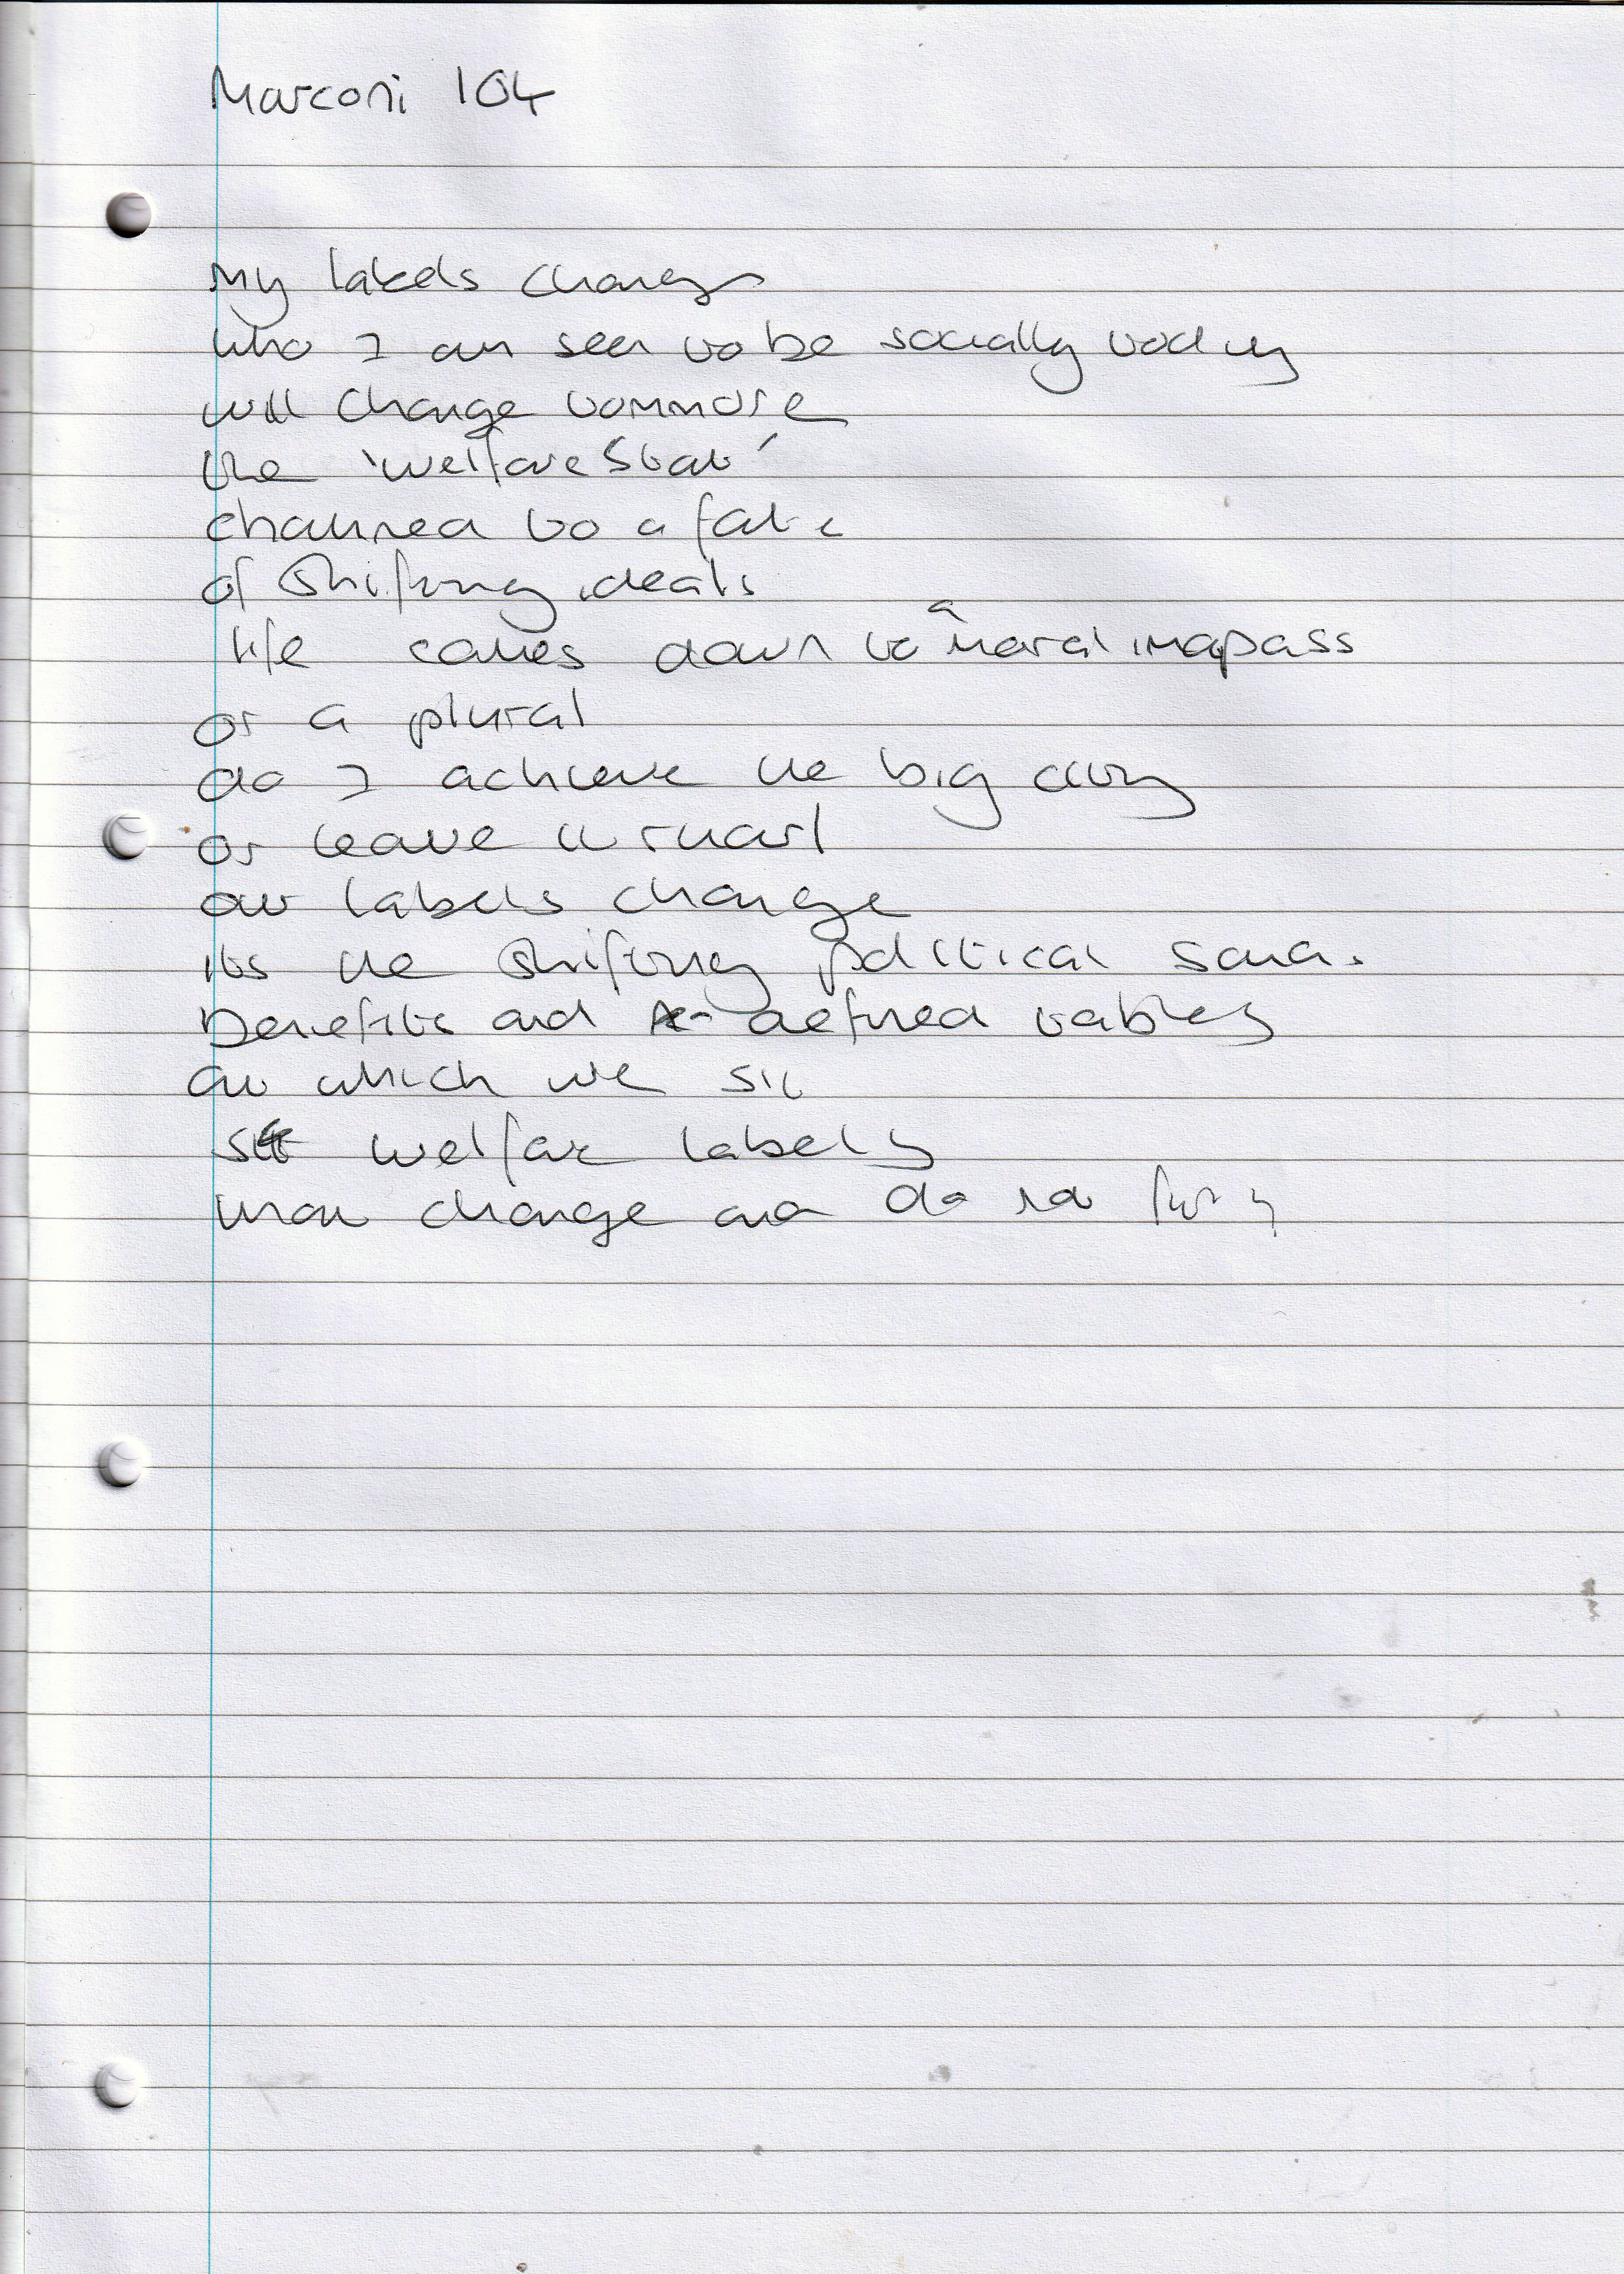 Marconi 104
My labels change
who I am seen to be socially today
will change tommore
the 'welfare State'
chained to a fate
of Shifting ideals
life comes down to a moral imapass
or a plural
do I achieve the big city
or leave it rural
our labels change
its the Shifting political sand.
Benefits and defined tables
at which we sit
welfare labels
that change and do no